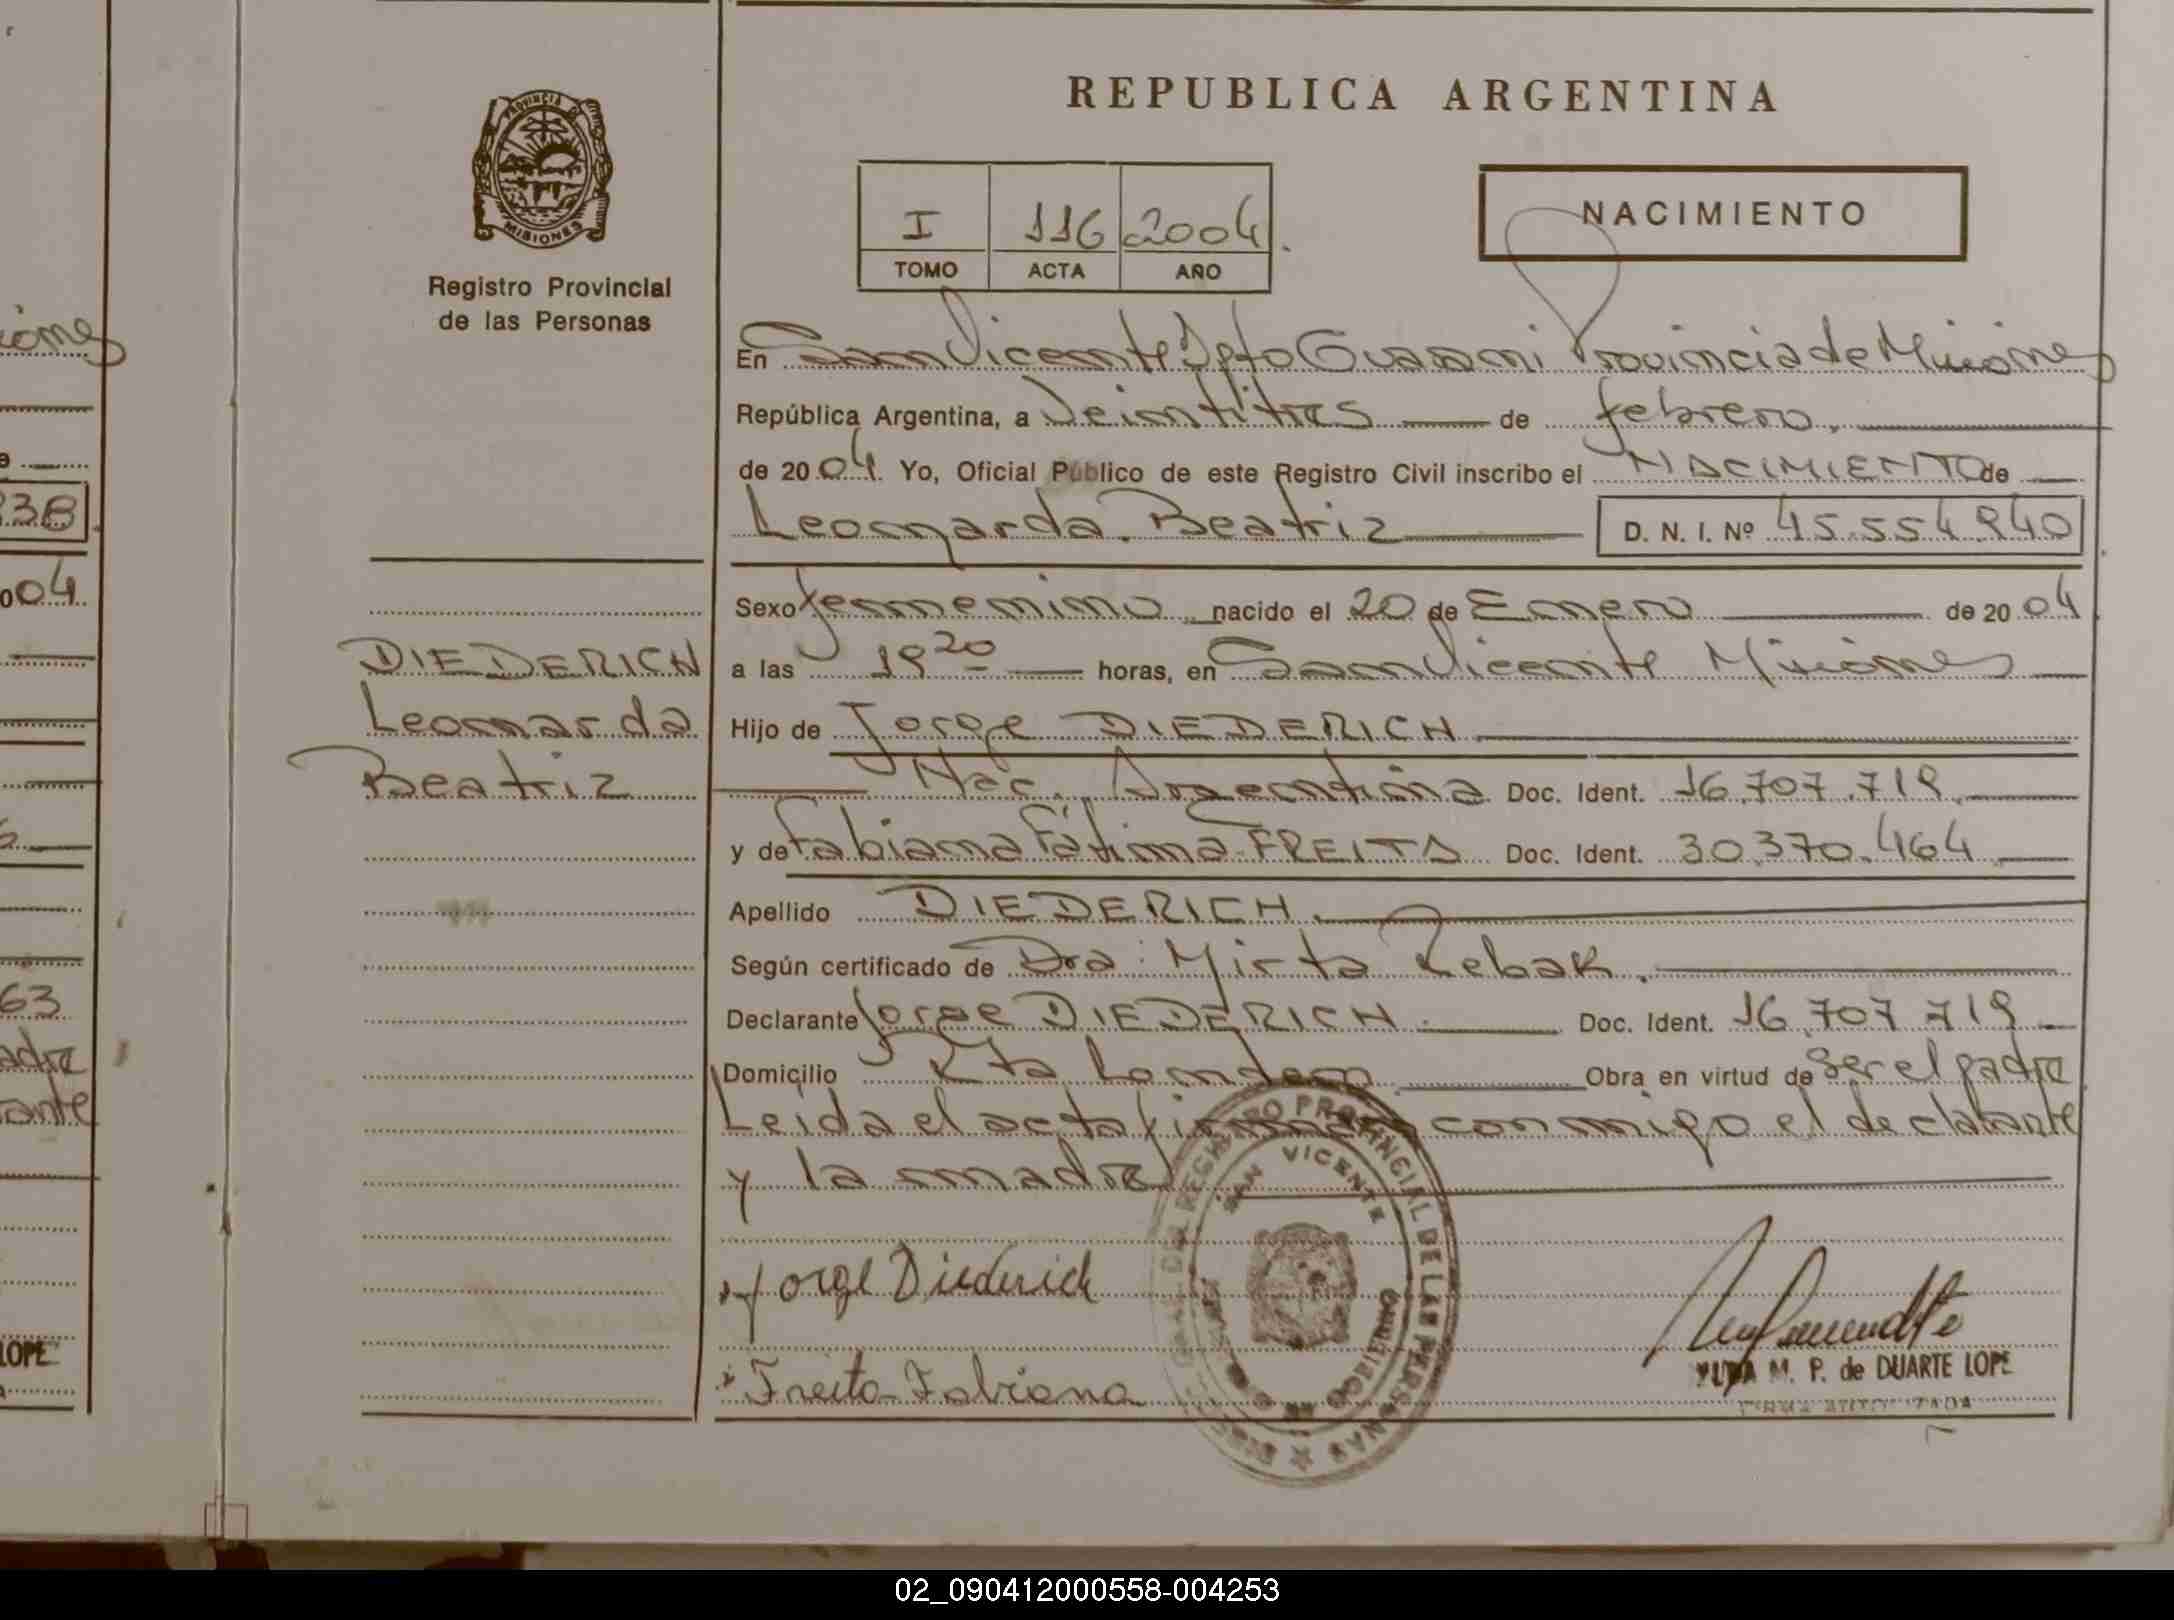 REPUBLICA ARGENTINA
PROVINCIA DE MISIONES
Registro Provincial
de las Personas
I 116 2004
TOMO ACTA AÑO
NACIMIENTO
En San Vicente Dpto Guarani Provincia de Misiones
República Argentina, a Veintitres de febrero,
de 2004. Yo, Oficial Público de este Registro Civil inscribo el NACIMIENTO de
Leonarda Beatriz D. N. I. Nº 45.554.940
Sexo femenino nacido el 20 de Enero de 2004
a las 19 20 horas, en San Vicente Misiones
Hijo de Jorge DIEDERICH
Nac. Argentina Doc. Ident. 16.707.719
y de Fabiana Fátima FREITA Doc. Ident. 30.370.464
Apellido DIEDERICH
Según certificado de Dra: Mirta Rebak.
Declarante Jorge DIEDERICH. Doc. Ident. 16.707.719
Domicilio Obra en virtud de ser el padre
Leida el acta firman conmigo el declarante
y la madre
DIEDERICH
Leonarda
Beatriz
Jorge Diederich
Freita Fabiana
REGISTRO PROVINCIAL DE LAS PERSONAS
SAN VICENTE
M. P. de DUARTE LOPE
iones
04
63
adre
ante
LOPE
02_090412000558-004253